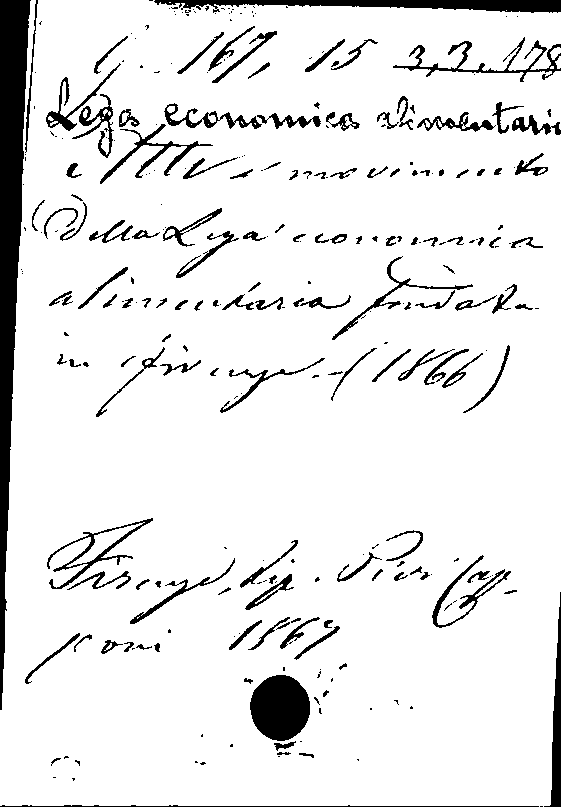 G. 167, 15 3,3,178
Lega economica alimentaria
Atti e movimento
della Lega economica
alimentaria fondata
in Firenze. (1866)
Firenze, tip. Pier Cap-
poni 1867